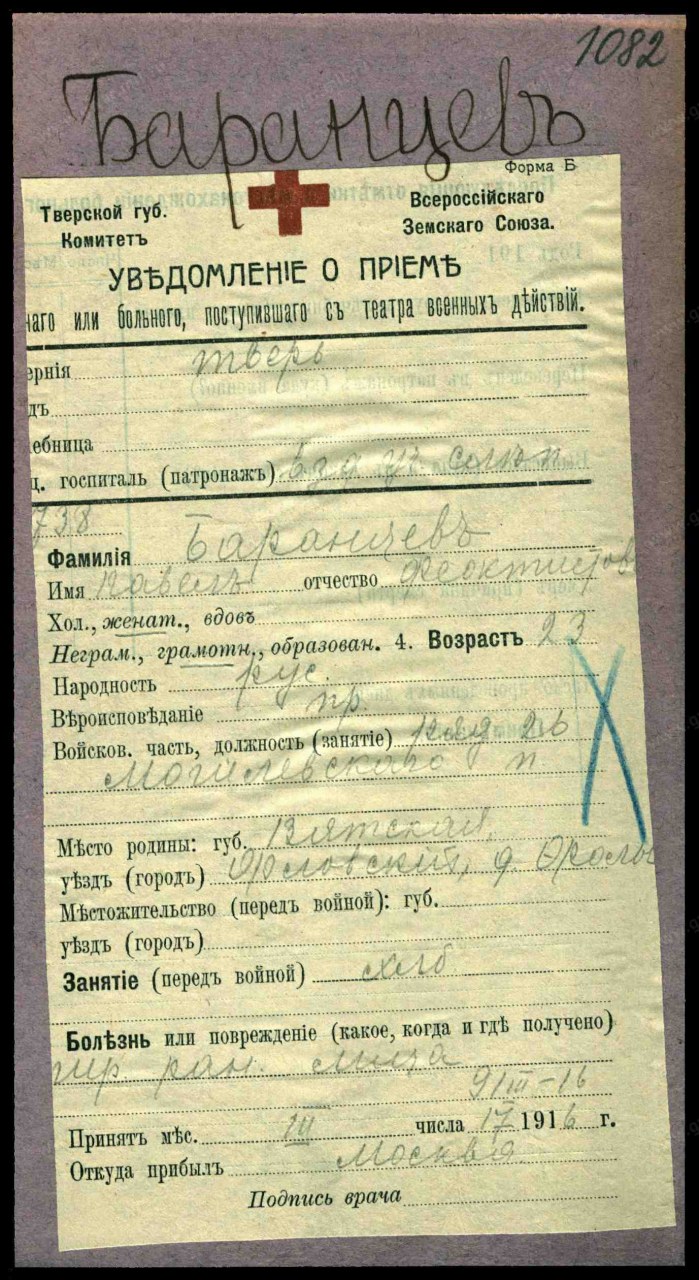 1082
Баранцевъ
Форма Б
Тверской губ.
Комитетъ
Всероссійскаго
Земскаго Союза.
УВѢДОМЛЕНІЕ О ПРІЕМѢ
наго или больного, поступившаго съ театра военныхъ дѣйствій.
ернія тверь
дъ
ебница
ц. госпиталь (патронажъ)
738
Фамилія Баранцевъ
Имя Павелъ отчество Феоктистов
Хол., женат., вдовъ
Неграм., грамотн., образован. 4. Возрастъ 23
Народность рус.
Вѣроисповѣданіе пр.
Войсков. часть, должность (занятіе) ряд 26
Могилевскаго п
Место родины: губ. Вятская,
уѣздъ (городъ) Орловскій, д.
Мѣстожительство (передъ войной): губ.
уѣздъ (городъ)
Занятіе (передъ войной) хлѣб
Болѣзнь или поврежденіе (какое, когда и гдѣ получено)
ран. лица
9/III–16
Принятъ мѣс. III числа 17 1916 г.
Откуда прибылъ Москва
Подпись врача